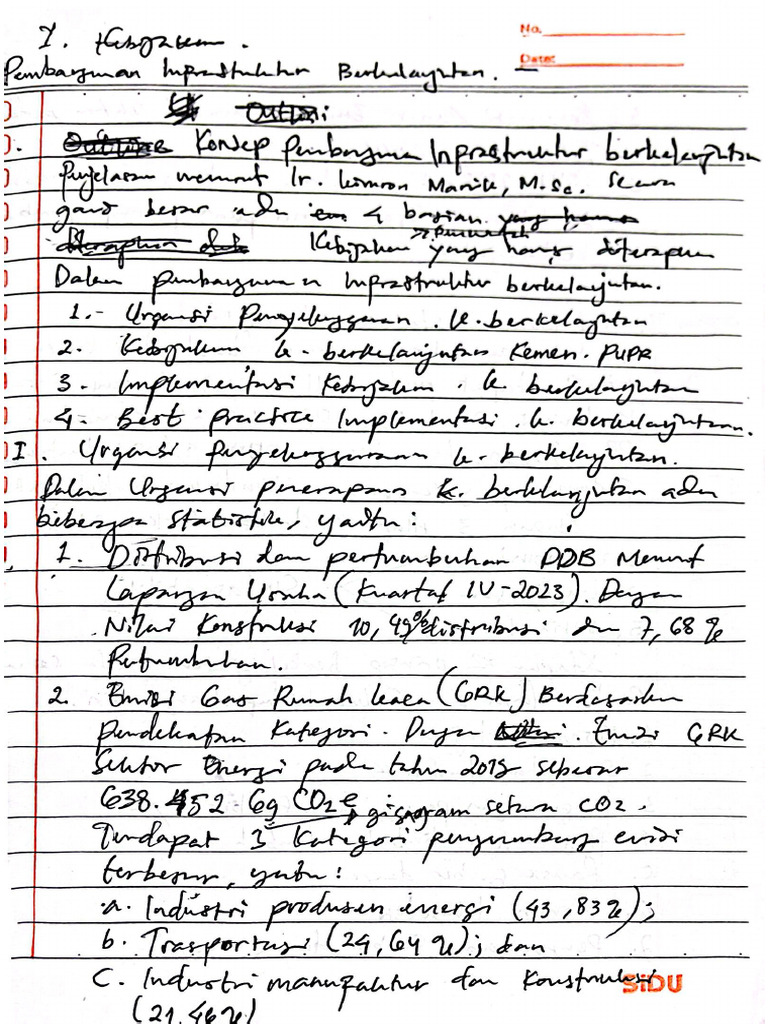 No.
Date:
I. Kebijakan.
Pembangunan Infrastruktur Berkelanjutan.
Konsep Pembangunan Infrastruktur berkelanjutan
Penjelasan menurut Ir. Manik, M.Sc. secara
garis besar ada 4 bagian
Kebijakan Pemerintah yang harus diterapkan
Dalam pembangunan Infrastruktur berkelanjutan.
1. Urgensi Penyelenggaraan k. berkelanjutan
2. Kebijakan k. berkelanjutan Kemen. PUPR
3. Implementasi Kebijakan. k. berkelanjutan
4. Best practice Implementasi. k. berkelanjutan.
I. Urgensi penyelenggaraan k. berkelanjutan.
Dalam Urgensi penerapan k. berkelanjutan ada
beberapa statistik, yaitu:
1. Distribusi dan pertumbuhan PDB Menurut
Lapangan Usaha (Kuartal IV-2023). Dengan
Nilai Konstruksi 10,49% distribusi dan 7,68%
Pertumbuhan.
2. Emisi Gas Rumah kaca (GRK) Berdasarkan
pendekatan Kategori. Dengan Emisi GRK
Sektor Energi pada tahun sebesar
638.452 Gg CO2e gigagram setara CO2.
Terdapat 3 Kategori penyumbang emisi
terbesar, yaitu:
a. Industri produsen energi (43,83%);
b. Trasportasi (24,64%); dan
c. Industri manufaktur dan Konstruksi
(21,46%)
SiDU